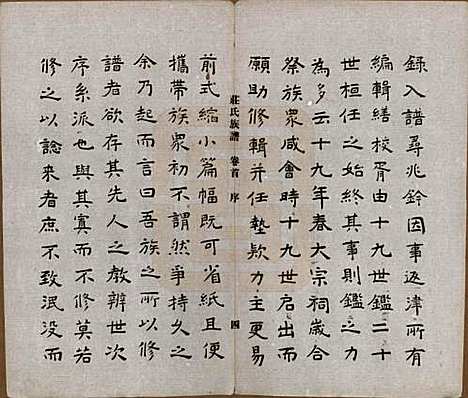 錄入譜尋兆鈴因事返津所有
編輯繕校胥由十九世鑑二十
世桓任之始終其事則鑑之力
為多云十九年春大宗祠歲合
祭族眾咸會時十九世启出而
願助修輯并任墊欵力主更易
莊氏族譜 卷首 序 四
前式縮小篇幅既可省紙且便
攜帶族眾初不謂然爭持久之
余乃起而言曰吾族之所以修
譜者欲存其先人之教辨世次
序系派也與其寘而不修莫若
修之以諗來者庶不致泯没而